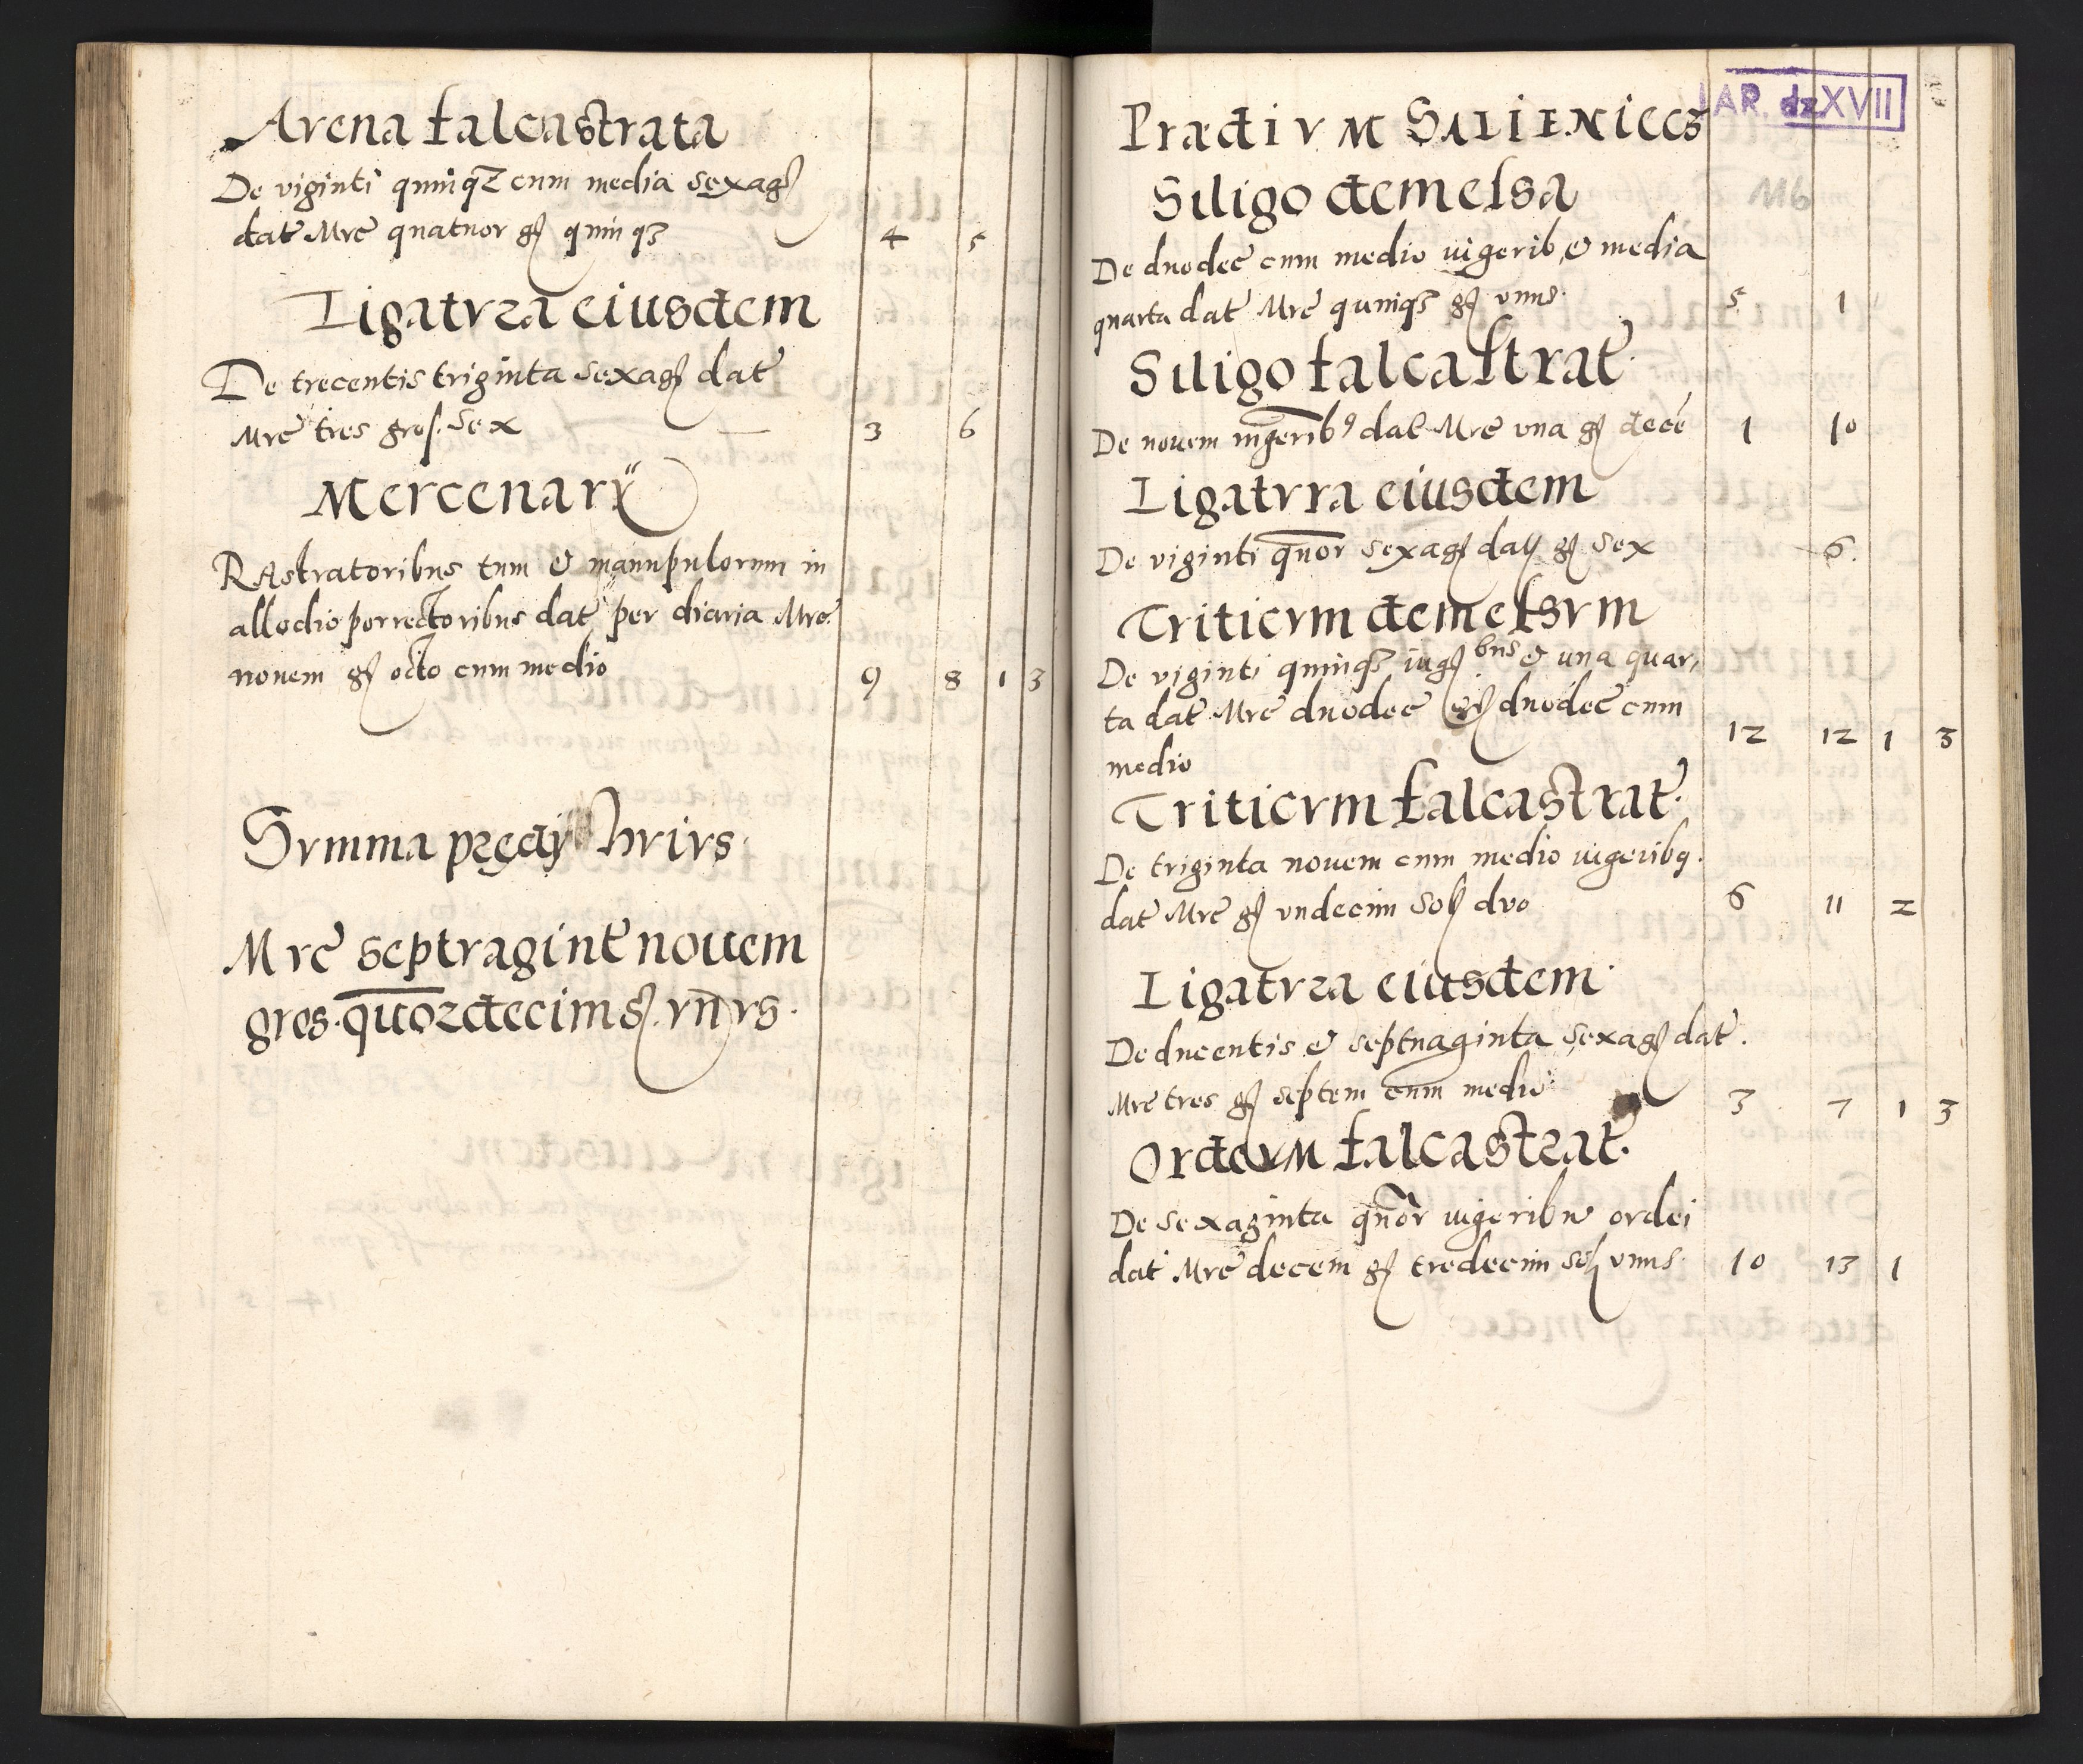 Arena falcastrata
De viginti quinqz cum media sexag
dat Mrc quatuor g quinqz 4 5
Ligatvra eiusdem
De trecentis triginta sexag dat
Mrc tres gros. Sex 3 6
Mercenarÿ
RAstratoribus tum & manupulorum in
allodio porrectoribus dat per diaria Mrc
novem g octo cum medio 9 8 1 3
Svmma prędÿ hvivs.
Mrc septvagint novem
gros. quordecim S. vnvs.
PrædivM
IAR. dz XVII
Siligo demelsa
M6
De duodec cum medio iugerib, & media
quarta dat Mrc quinqz g vnus. 5. 1
Siligo falcastrat
De novem iugerib9 dat Mrc vna g decē 1 10
Ligatvra eiusdem
De viginti quor sexag dat g Sex 6.
Triticvm demelsvm
De viginti quinqz iug bus & una quar,
ta dat Mrc duodec g duodec cum
medio 12 12 1 3
Triticvm falcastrat.
De triginta novem cum medio iugeribq.
dat Mrc g vndecim Sol dvo 6 11 2
Ligatvra eiusdem.
De ducentis & septuaginta sexag dat.
Mrc tres g septem cum medio 3 7 1 3
OrdevM falcastrat.
De Sexaginta quor iugeribus ordei
dat Mrc decem g tredecim Sol vnus. 10 13 1